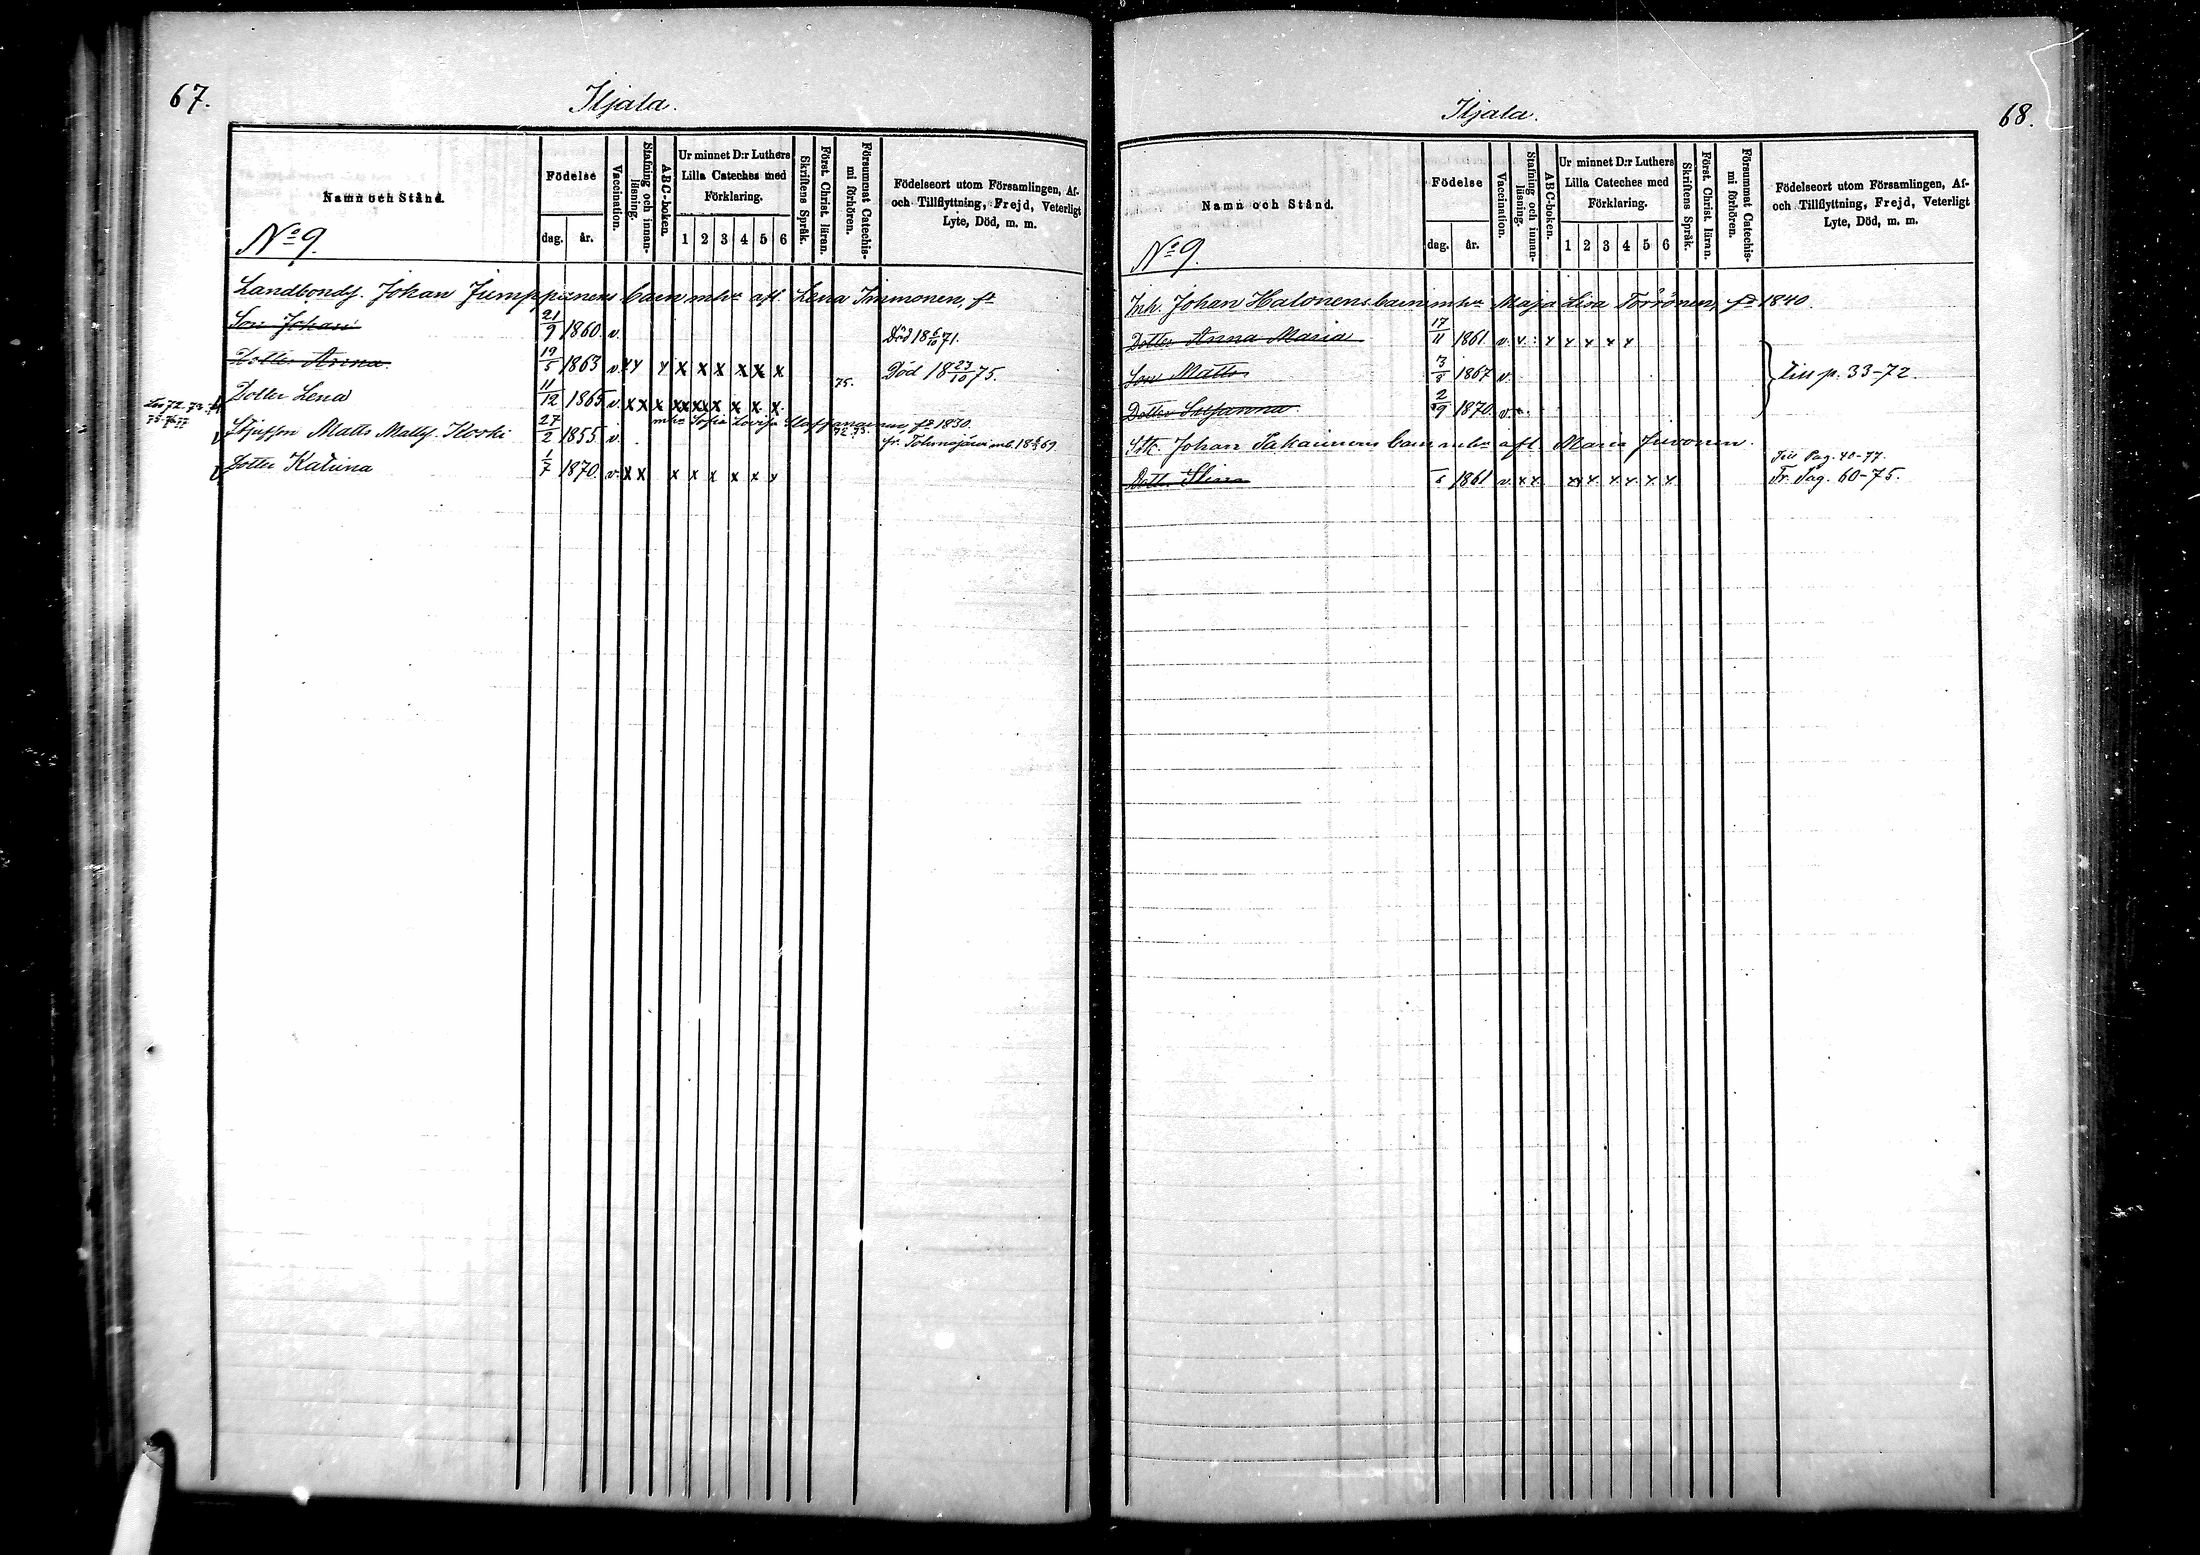 67.
Iljala.
Namn och Stånd.
Födelse
dag.
år.
Vaccination.
Stafning och innan-
läsning.
ABC-boken.
Ur minnet D:r Luthers
Lilla Cateches med
Förklaring.
1 2 3 4 5 6
Skriftens Språk.
Först. Christ. läran.
Försummat Catechis-
mi förhören.
Födelseort utom Församlingen, Af-
och Tillflyttning, Frejd, Veterligt
Lyte, Död, m. m.
No 9.
Landbondf. Johan Jumppanens barn mhu afl. Lena Immonen, fe
Son Johan 21/9 1860. v. Död 18 6/10 71.
Dotter Anna 19/5 1863 v. x x x x x x x x x Död 18 23/10 75.
Dotter Lena 11/12 1865 v. x x x x x x x x x x x 75.
mhu Sofia Lovisa Staffanainen, fe 1830.
72. 73. 74
75. 76. 77
Styfson Matts Mattsf. Kovki 27/2 1855 v. 72. 73. fr. Tohmajärvi 69.
Dotter Katrina 1/7 1870. v. x x x x x x x x
68.
Iljala.
Namn och Stånd.
Födelse
dag.
år.
Vaccination.
Stafning och innan-
läsning.
ABC-boken.
Ur minnet D:r Luthers
Lilla Cateches med
Förklaring.
1 2 3 4 5 6
Skriftens Språk.
Först. Christ. läran.
Försummat Catechis-
mi förhören.
Födelseort utom Församlingen, Af-
och Tillflyttning, Frejd, Veterligt
Lyte, Död, m. m.
No 9.
Inh. Johan Halonens barn mhu Maja Lisa Törrönen, fe 1840.
Dotter Anna Maria 17/11 1861 v. x x x x x x
Son Matts 3/8 1867 v. Till p. 33-72.
Dotter Susanna 2/9 1870. v. x.
Johan Sakarinens barn mhu afl. Maria Juvonen.
Till Pag. 40-77.
Dott. Stina /5 1861 v. x x x x x x x x x Fr. Pag. 60-75.